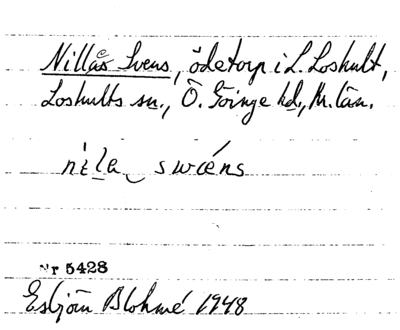 Nillas Svens, ödetorp i L. Loshult,
Loshults sn., Ö. Göinge hd., Kr. län.
nila‿swæ´ns
Nr 5428
Esbjörn Blohmé 1948